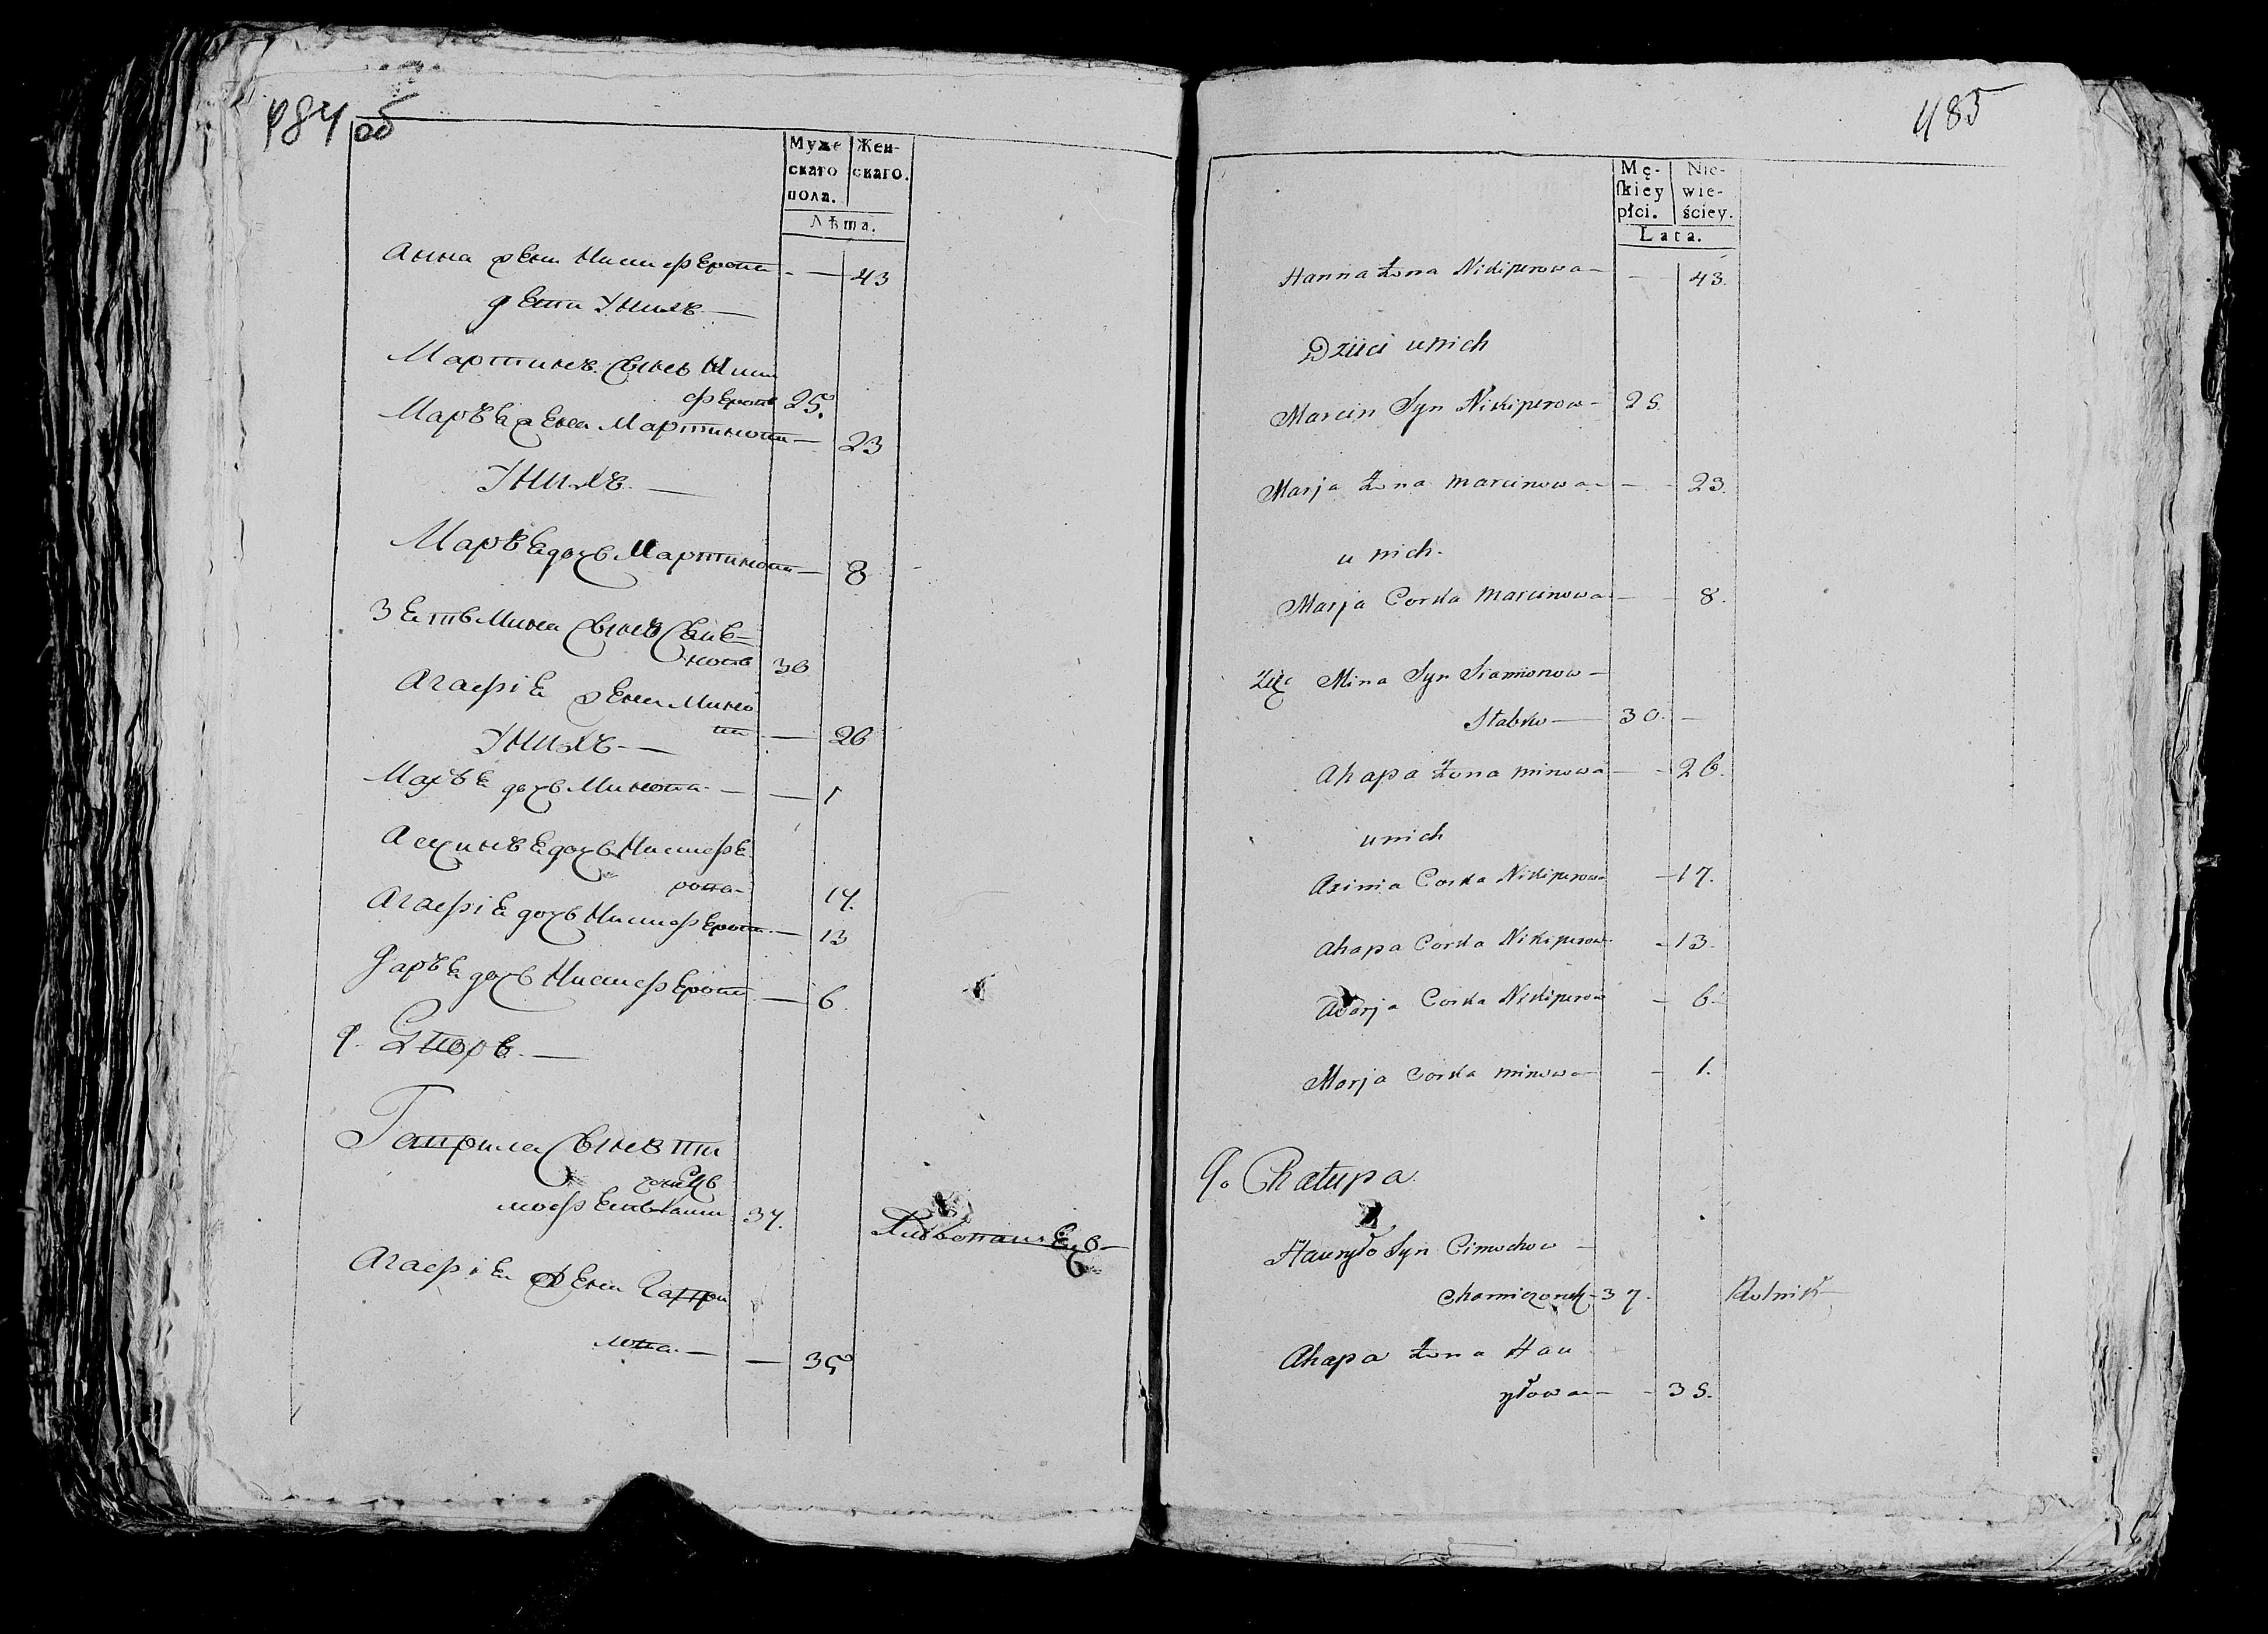 484 об
Муже
скаго
пола.
Жен-
скаго.
Лѣта.
Анна жена Никиферова - — 43
дети У нихъ —
Мартинъ Сынъ Ники
феровъ 25.
Марья жена Мартинова — 23
У нихъ —
Марья дочь Мартинова — 8
Зять Мина Сынъ
30
Агафія жена Мино
ва — 26
У нихъ —
Марья дочь Минова — — 1
Аксинья дочь Никифе
рова 17.
Агафія дочь Никиферова — 13
Дарья дочь Никиферова — 6.
9. Дворъ —
Гаврила Сынъ Ти
мофеевъ 37.
Агафія жена Гаври
лова — — 35
485
Mę-
ſkiey
płci.
Nie-
wie-
ściey.
Lata.
Hanna Żona Nikiperowa — — 43.
Dzieci u nich
Marcin Syn Nikiperow — 25.
Marja Żona Marcinowa — — 23.
u nich.
Marja Corka Marcinowa — — 8.
Zięć Mina Syn Siamionow —
30. —
Ahapa Żona Minowa — - 26.
u nich
Axinia Corka Nikiperowa — 17.
Ahapa Corka Nikiperow - 13.
Darja Corka Nikiperow - 6.
Marja Corka Minowa - 1.
9. Chałupa.
Hauryło Syn Cimochow —
Chomiczonek - 37. Rolnik
Ahapa Żona Hau
ryłowa — - 35.